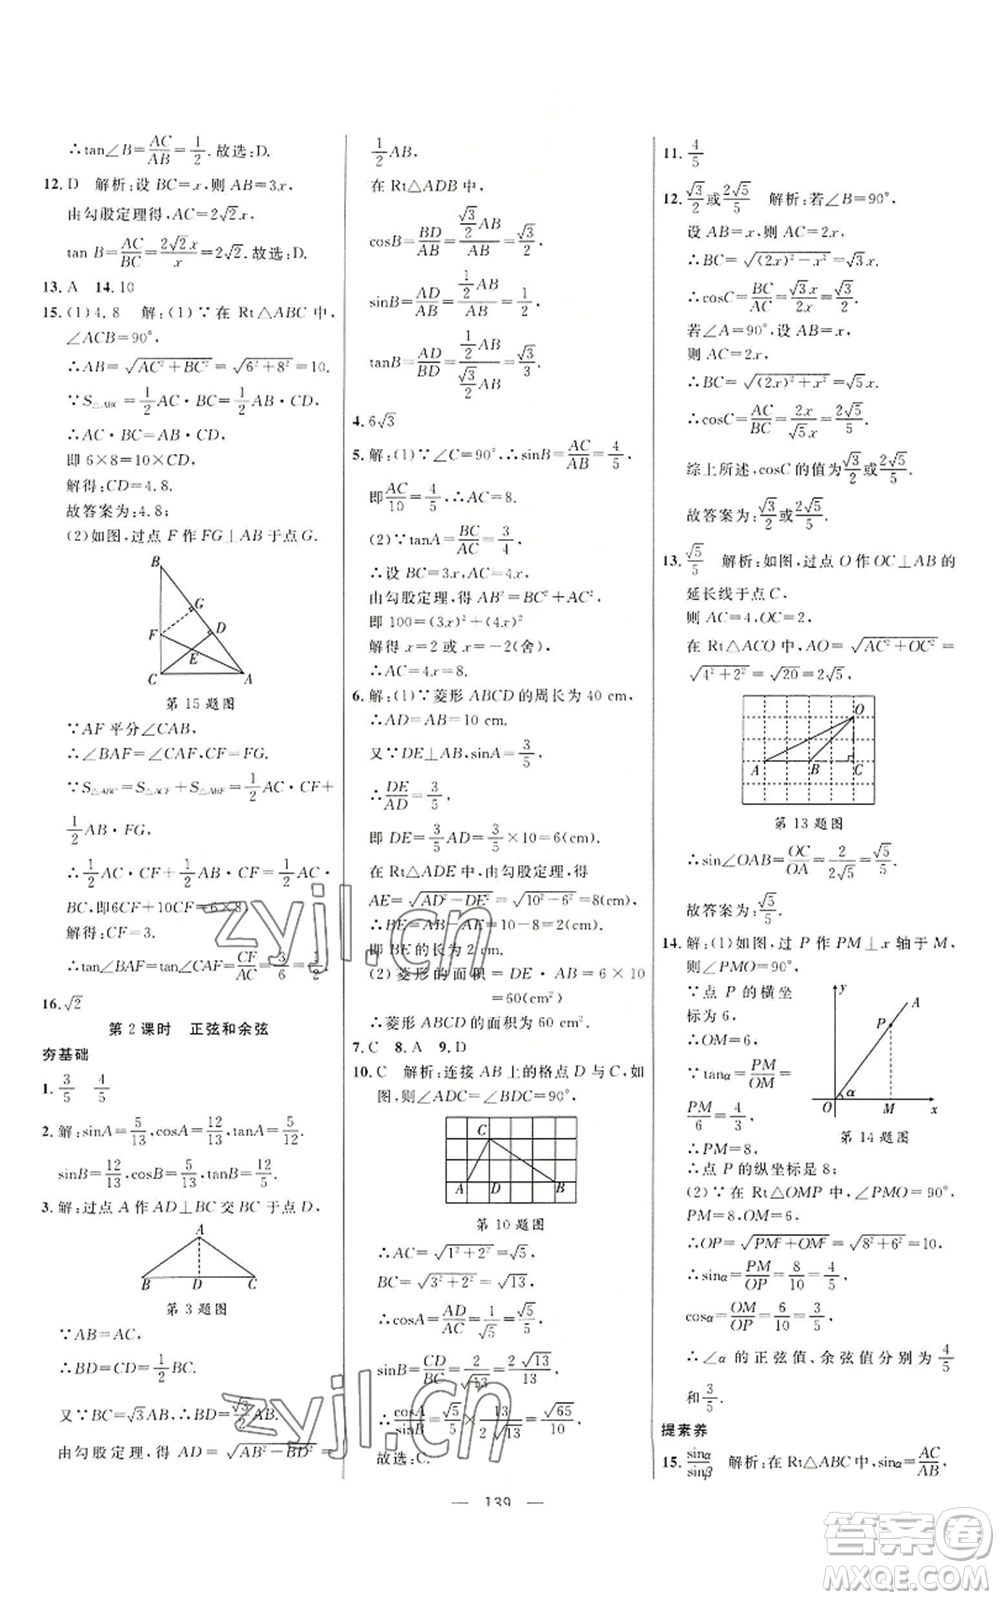 ∴tan∠B=AC/AB=1/2.故选:D.
12. D 解析:设 BC=x,则 AB=3x,
由勾股定理得,AC=2√2x.
tan B=AC/BC=2√2x/x=2√2.故选:D.
13. A 14. 10
15. (1)4.8 解:(1)∵在 Rt△ABC 中,
∠ACB=90°,
∴AB=√(AC²+BC²)=√(6²+8²)=10.
∵S△ABC=1/2 AC·BC=1/2 AB·CD,
∴AC·BC=AB·CD,
即 6×8=10×CD,
解得:CD=4.8.
故答案为:4.8;
(2)如图,过点 F 作 FG⊥AB 于点 G.
B
G
F
D
E
C
A
第 15 题图
∵AF 平分∠CAB,
∴∠BAF=∠CAF,CF=FG.
∵S△ABC=S△ACF+S△ABF=1/2 AC·CF+
1/2 AB·FG,
∴1/2 AC·CF+1/2 AB·CF=1/2 AC·
BC,即6CF+10CF=6×8.
解得:CF=3.
∴tan∠BAF=tan∠CAF=CF/AC=3/6=1/2.
16. √2
第 2 课时 正弦和余弦
夯基础
1. 3/5 4/5
2. 解:sinA=5/13,cosA=12/13,tanA=5/12.
sinB=12/13,cosB=5/13,tanB=12/5.
3. 解:过点 A 作 AD⊥BC 交 BC 于点 D,
A
B
D
C
第 3 题图
∵AB=AC,
∴BD=CD=1/2 BC.
又∵BC=√3AB,∴BD=√3/2 AB.
由勾股定理,得 AD=√(AB²-BD²)=
1/2 AB,
在 Rt△ADB 中,
cosB=BD/AB=(√3/2 AB)/AB=√3/2,
sinB=AD/AB=(1/2 AB)/AB=1/2,
tanB=AD/BD=(1/2 AB)/(√3/2 AB)=√3/3.
4. 6√3
5. 解:(1)∵∠C=90°,∴sinB=AC/AB=4/5,
即AC/10=4/5,∴AC=8.
(2)∵tanA=BC/AC=3/4,
∴设 BC=3x,AC=4x,
由勾股定理,得 AB²=BC²+AC²,
即 100=(3x)²+(4x)²
解得 x=2 或 x=-2(舍)
∴AC=4x=8.
6. 解:(1)∵菱形 ABCD 的周长为 40 cm,
∴AD=AB=10 cm.
又∵DE⊥AB,sinA=3/5,
∴DE/AD=3/5,
即 DE=3/5 AD=3/5×10=6(cm).
在 Rt△ADE 中,由勾股定理,得
AE=√(AD²-DE²)=√(10²-6²)=8(cm),
∴BE=AB-AE=10-8=2(cm),
即 BE 的长为 2 cm.
(2)菱形的面积=DE·AB=6×10
=60(cm²)
∴菱形 ABCD 的面积为 60 cm².
7. C 8. A 9. D
10. C 解析:连接 AB 上的格点 D 与 C,如
图,则∠ADC=∠BDC=90°,
C
A
D
B
第 10 题图
∴AC=√(1²+2²)=√5,
BC=√(3²+2²)=√13,
∴cosA=AD/AC=1/√5=√5/5,
sinB=CD/BC=2/√13=2√13/13,
∴cosA/sinB=√5/5×13/2√13=√65/10.
故选:C.
11. 4/5
12. √3/2或2√5/5 解析:若∠B=90°,
设 AB=x,则 AC=2x,
∴BC=√((2x)²-x²)=√3x.
∴cosC=BC/AC=√3x/2x=√3/2.
若∠A=90°,设 AB=x,
则 AC=2x,
∴BC=√((2x)²+x²)=√5x.
∴cosC=AC/BC=2x/√5x=2√5/5.
综上所述,cosC 的值为√3/2或2√5/5.
故答案为:√3/2或2√5/5.
13. √5/5 解析:如图,过点 O 作 OC⊥AB 的
延长线于点 C,
则 AC=4,OC=2,
在 Rt△ACO 中,AO=√(AC²+OC²)=
√(4²+2²)=√20=2√5,
O
A
B
C
第 13 题图
∴sin∠OAB=OC/OA=2/2√5=√5/5.
故答案为:√5/5.
14. 解:(1)如图,过 P 作 PM⊥x 轴于 M,
则∠PMO=90°.
∵点 P 的横坐
标为 6,
∴OM=6,
∵tanα=
PM/OM=4/3,
PM/6=4/3,
∴PM=8,
y
A
P
α
O
M
x
第 14 题图
∴点 P 的纵坐标是 8;
(2)∵在 Rt△OMP 中,∠PMO=90°,
PM=8,OM=6,
∴OP=√(PM²+OM²)=√(8²+6²)=10,
∴sinα=PM/OP=8/10=4/5,
cosα=OM/OP=6/10=3/5,
∴∠α 的正弦值、余弦值分别为 4/5
和3/5.
提素养
15. sinα/sinβ 解析:在 Rt△ABC 中,sinα=AC/AB,
— 139 —
zyjl.cn
zyjl.cn
答案圈
MXQE.COM